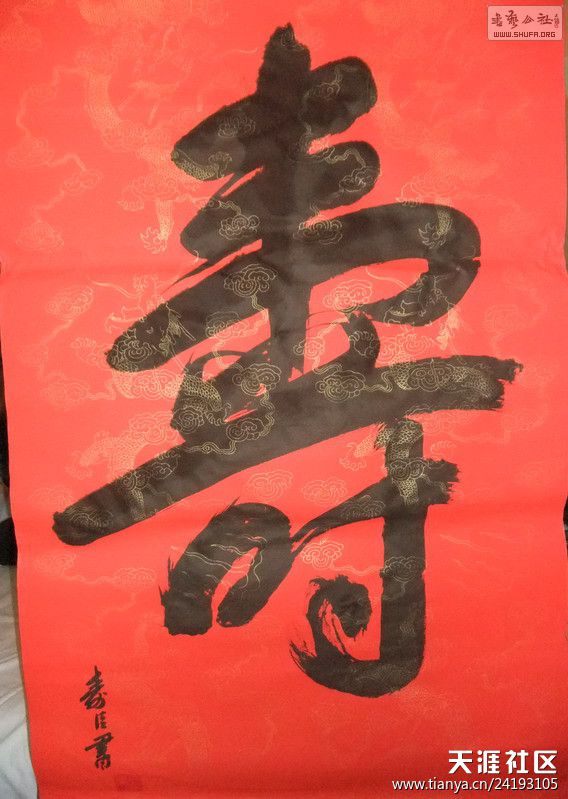 书艺公社
WWW.SHUFA.ORG
壽
寿臣書
天涯社区
www.tianya.cn/24193105